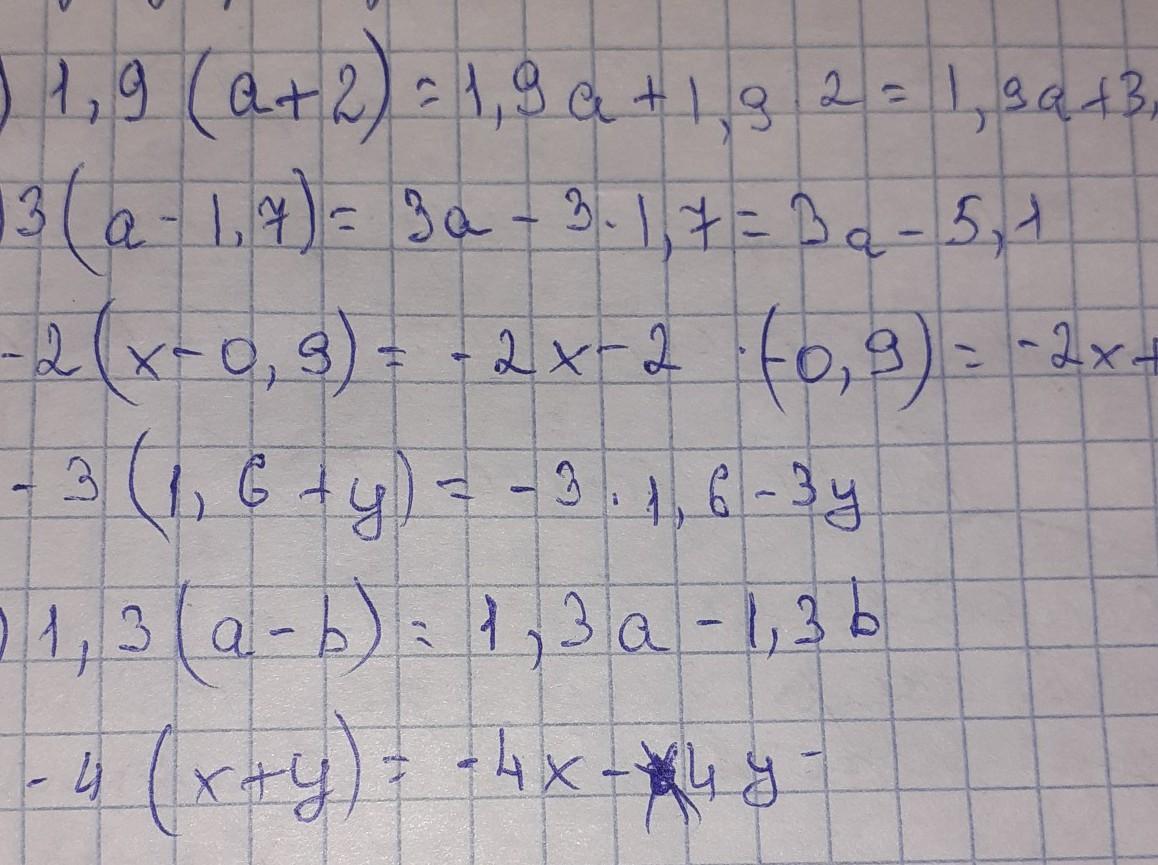 ) 1,9 (a+2) = 1,9a + 1,9 2 = 1,9a+3,
) 3(a - 1,7) = 3a - 3·1,7 = 3a - 5,1
-2(x-0,9) = -2x-2 ·(-0,9) = -2x+
-3(1,6+y) = -3·1,6-3y
) 1,3(a-b) = 1,3a - 1,3b
-4 (x+y) = -4x-4y-